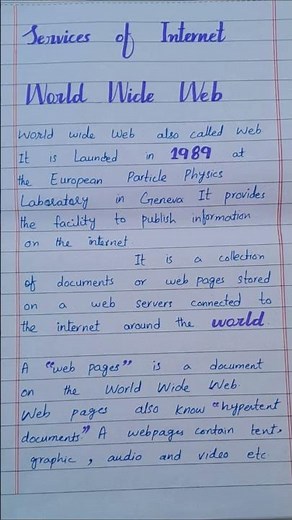 Services of Internet
World Wide Web
World wide Web also called Web
It is Launded in 1989 at
the European Particle Physics
Laboratory in Geneva It provides
the facility to publish information
on the internet
It is a collection
of documents or web pages stored
on a web servers connected to
the internet around the world
A "web pages" is a document
on the World Wide Web.
Web pages also know "hypertent
documents" A webpages contain tent,
graphic, audio and video etc